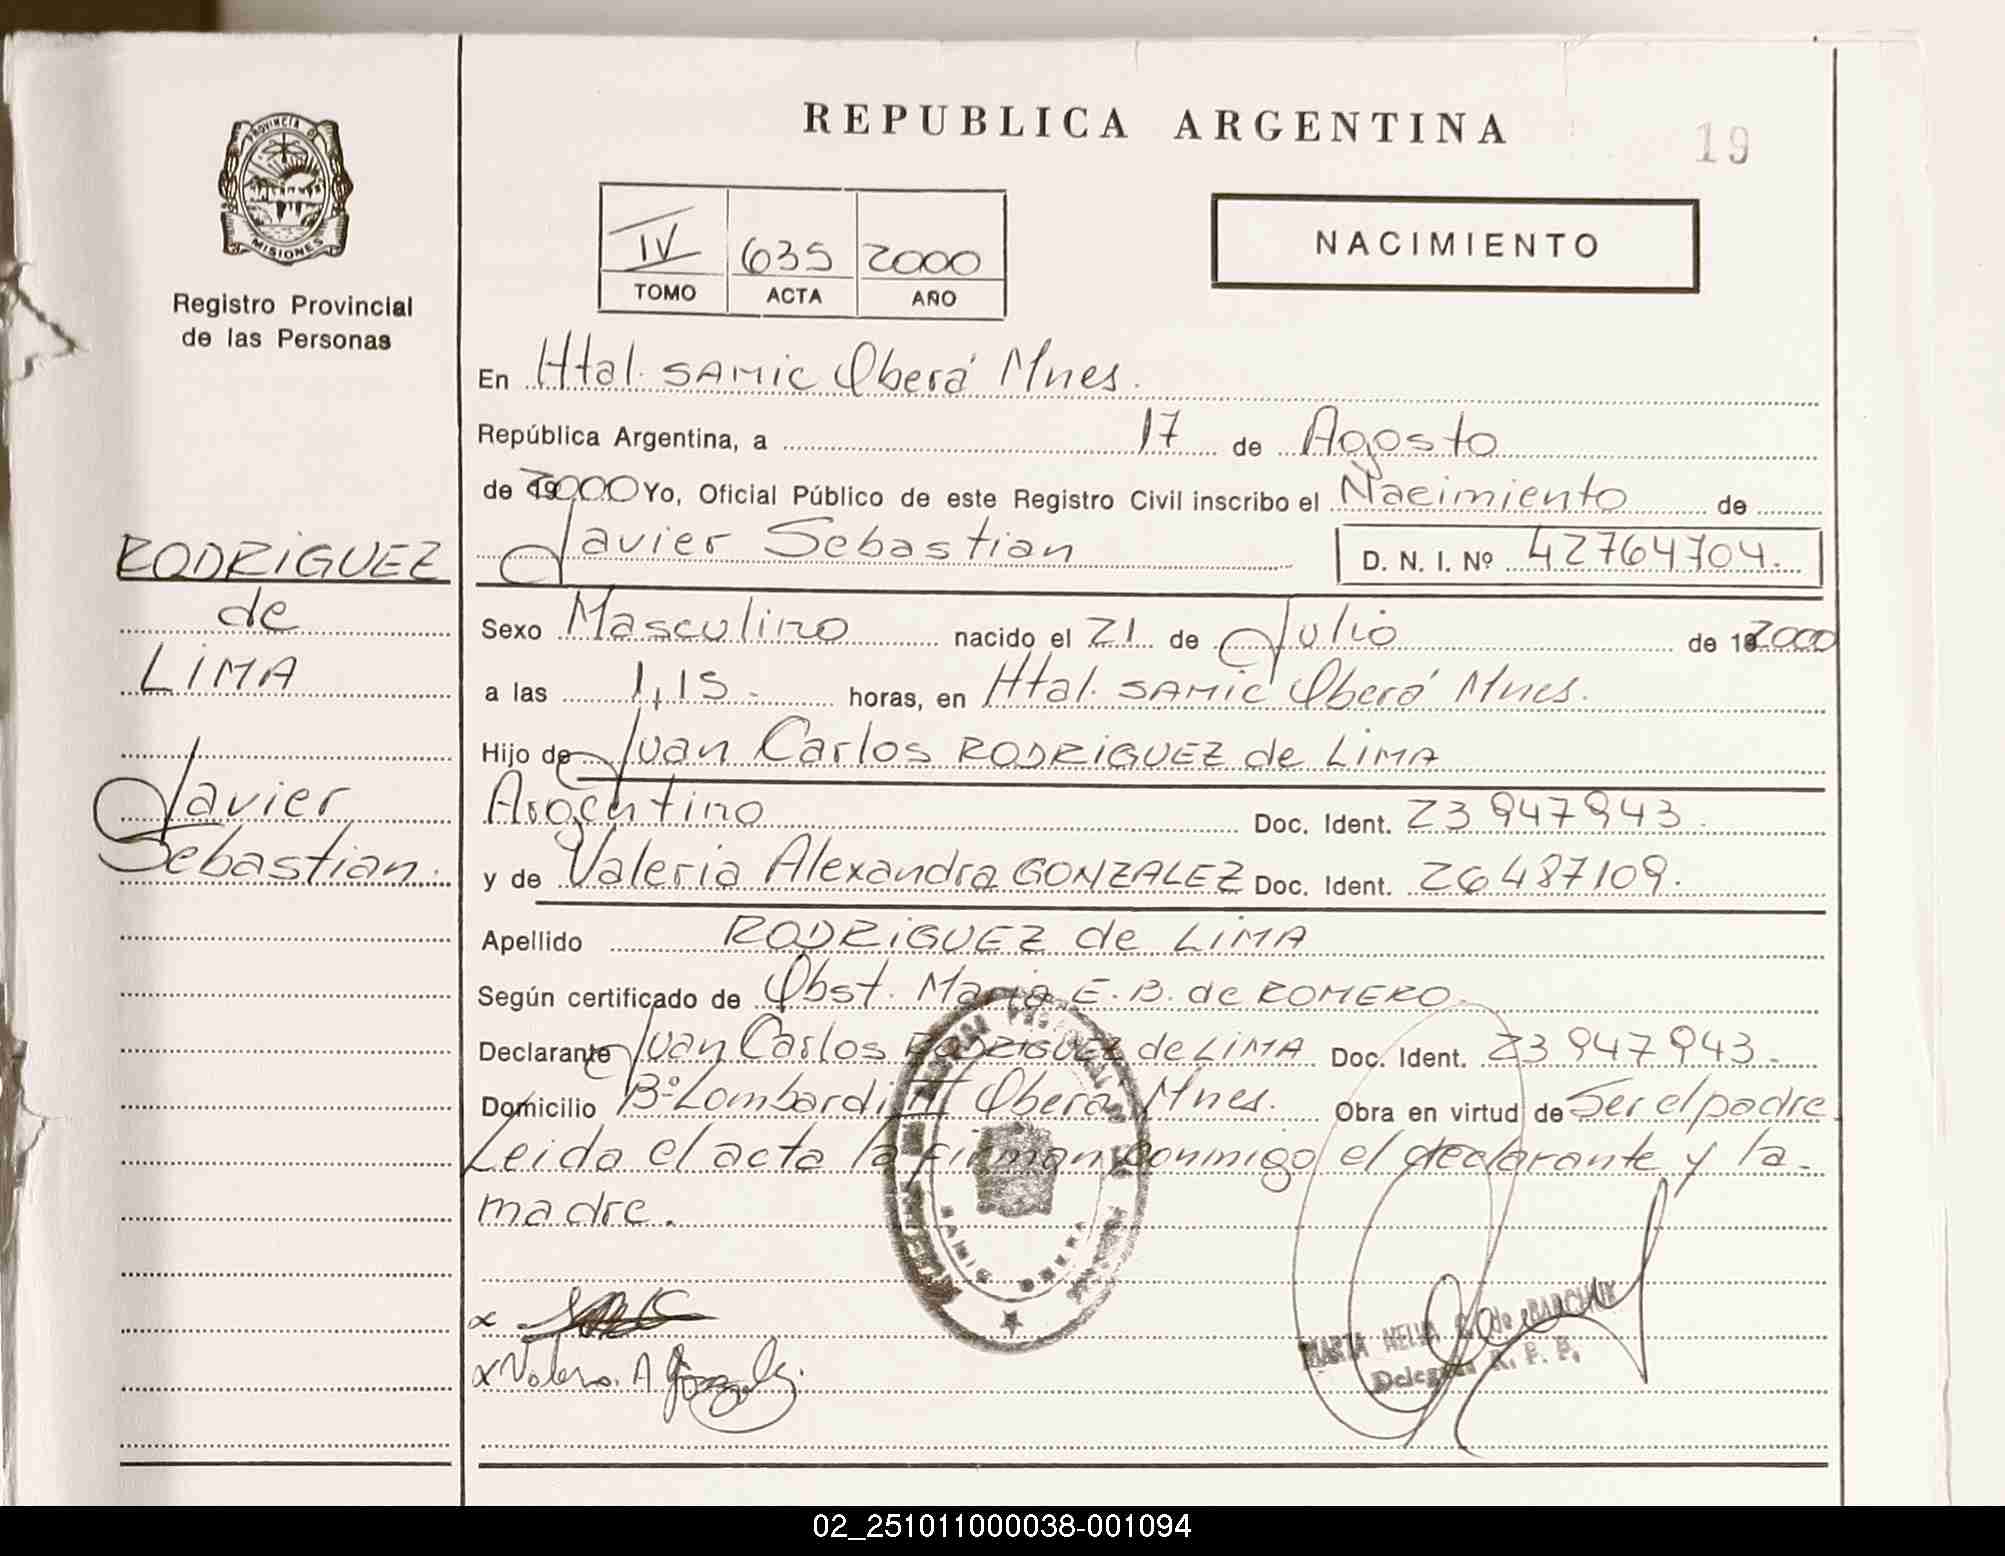 REPUBLICA ARGENTINA
19
PROVINCIA DE
MISIONES
Registro Provincial
de las Personas
IV 635 2000
TOMO ACTA AÑO
NACIMIENTO
En Htal. SAMIC Oberá Mnes.
República Argentina, a 17 de Agosto
de 2000 Yo, Oficial Público de este Registro Civil inscribo el Nacimiento de
Javier Sebastian D. N. I. Nº 42764704.
RODRIGUEZ
de
LIMA
Javier
Sebastian.
Sexo Masculino nacido el 21 de Julio de 2000
a las 1,15. horas, en Htal. SAMIC Oberá Mnes.
Hijo de Juan Carlos RODRIGUEZ de LIMA
Argentino Doc. Ident. 23 947943.
y de Valeria Alexandra GONZALEZ Doc. Ident. 26487109.
Apellido RODRIGUEZ de LIMA
Según certificado de Obst. Maria E. B. de ROMERO.
Declarante Juan Carlos RODRIGUEZ de LIMA Doc. Ident. 23 947 943.
Domicilio Bº Lombardi II Oberá Mnes. Obra en virtud de Ser el padre
Leida el acta la firman conmigo el declarante y la
madre.
SAMIC OBERA
MARTA NELIDA de
Delegada R. P. P.
Valeria. A. Gonzalez.
02_251011000038-001094